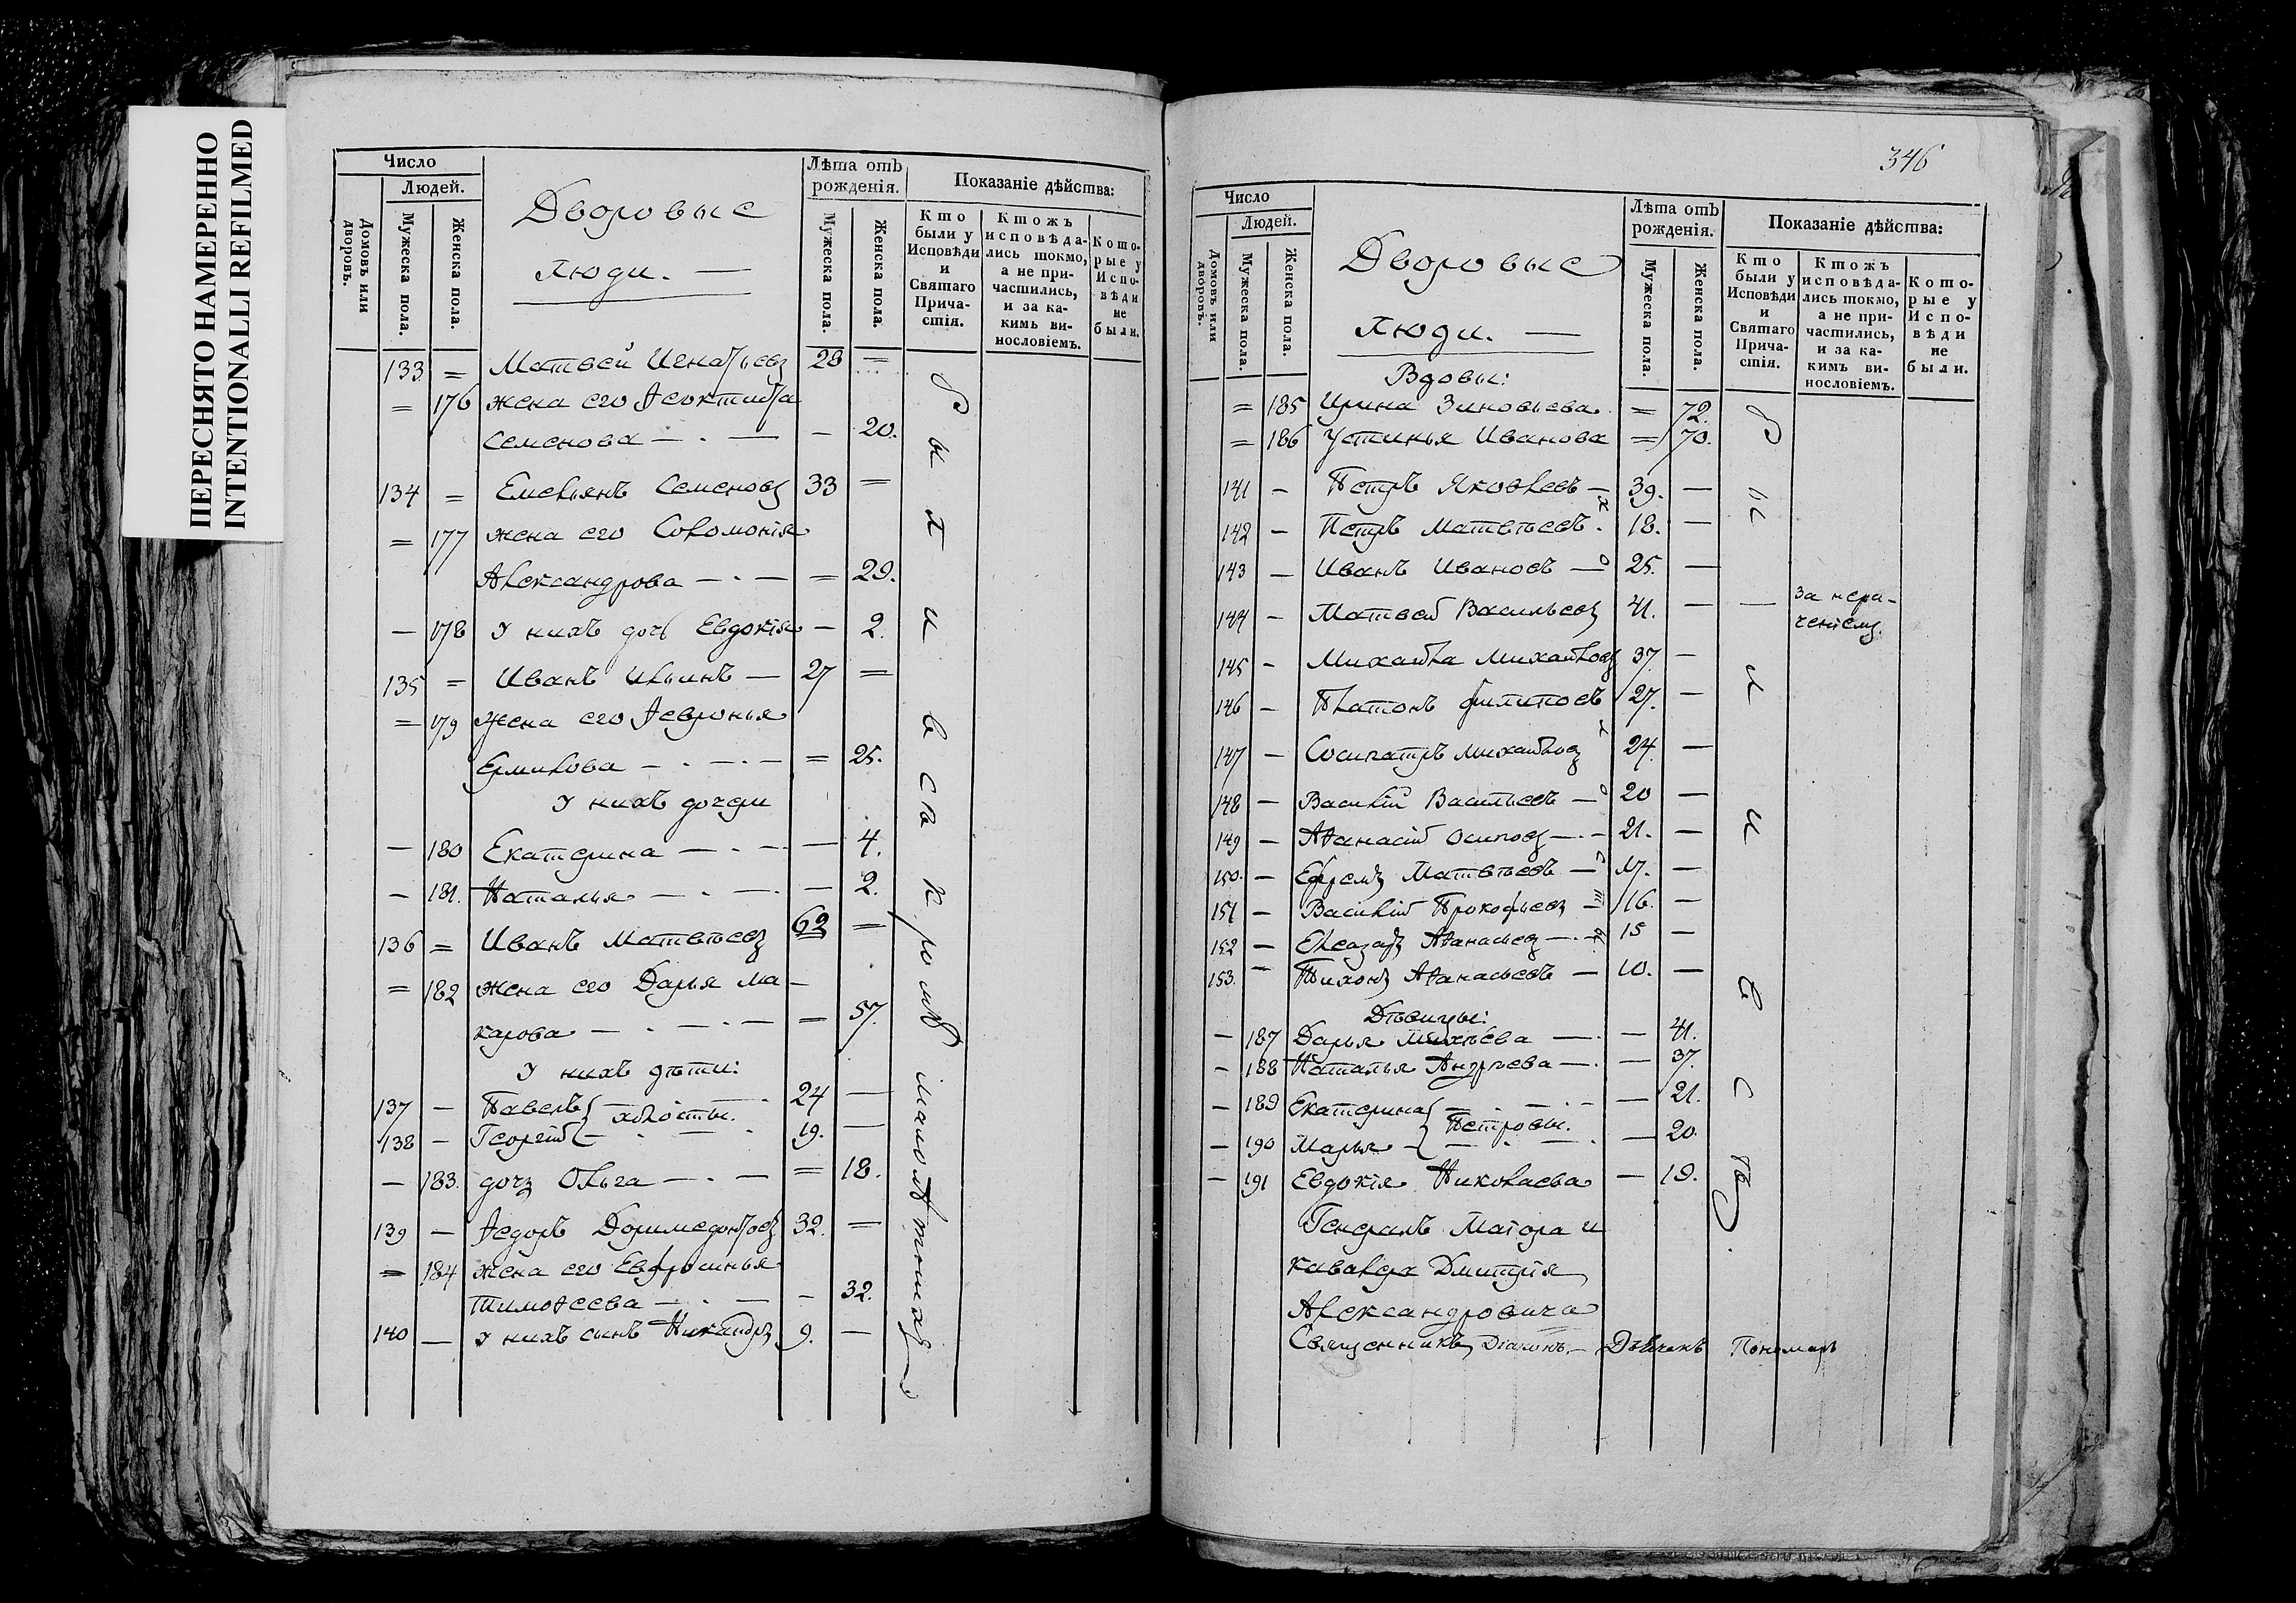 ПЕРЕСНЯТО НАМЕРЕННО
INTENTIONALLI REFILMED
Число
Людей.
Домовъ или дворовъ.
Мужеска пола.
Женска пола.
Дворовые
люди. —
Лѣта отъ рожденія.
Мужеска пола.
Женска пола.
Показаніе дѣйства:
Кто были у Исповѣди и Святаго Причастія.
Ктожъ исповѣдались токмо, а не причастились, и за какимъ винословіемъ.
Которые у Исповѣди не были.
133 = Матвей Игнатьевъ 28 =
= 176 жена его Ѳеоктиста
Семенова — · — — 20.
134 = Емельянъ Семеновъ 33 =
= 177 жена его Соломонія
Александрова — · — = 29.
— 178 У нихъ дочь Евдокія — 2.
135 = Иванъ Ильинъ — 27 =
= 179 Жена его Ѳевронья
Ермилова — · — · — = 25.
У нихъ дочери
— 180 Екатерина — · — · — 4.
— 181. Наталья — · — · — 2.
136 = Иванъ Матвѣевъ 62 =
= 182 жена его Дарья Ма-
карова — · — · — = 57.
У нихъ дѣти:
137 — Павелъ холосты. 24 —
138 — Георгій 19. —
— 183. дочь Ольга — · — = 18.
139 — Ѳедоръ Доримедонтовъ 32. —
= 184 жена его Евфросинья
Тимоѳеева — · — — 32.
140 — У нихъ сынъ Никандръ 9. —
кромѣ малолѣтнихъ
346
Число
Людей.
Домовъ или дворовъ.
Мужеска пола.
Женска пола.
Дворовые
люди. —
Лѣта отъ рожденія.
Мужеска пола.
Женска пола.
Показаніе дѣйства:
Кто были у Исповѣди и Святаго Причастія.
Ктожъ исповѣдались токмо, а не причастились, и за какимъ винословіемъ.
Которые у Исповѣди не были.
Вдовы:
= 185 Ирина Зиновьева = 72.
= 186 Устинья Иванова = 70.
141 — Петръ Яковлевъ — 39. —
142 — Петръ Матвѣевъ. 18. —
143 — Иванъ Ивановъ — 25. —
144 — Матвей Васильевъ 41. — — за нера-
ченіемъ.
145 — Михайла Михайловъ 37. —
146 — Платонъ Филиповъ 27. —
147 — Сосипатръ Михайловъ 24. —
148 — Василій Васильевъ — 20 —
149 — Аѳанасій Осиповъ — · — 21. —
150. — Ефремъ Матвѣевъ — 17. —
151 — Василій Прокофьевъ — 16. —
152 — Елеазаръ Аѳанасьевъ — · — 15 —
153. — Тихонъ Аѳанасьевъ — 10. —
Дѣвицы:
— 187 Дарья Михѣева — · — 41.
— 188 Наталья Андреева — · — 37.
— 189 Екатерина Петровы. — 21.
— 190 Марья — 20.
— 191 Евдокія Николаева — 19.
Генералъ Маіора и
кавалера Дмитрія
Александровича
Священникъ Діаконъ — Дьячекъ Пономарь